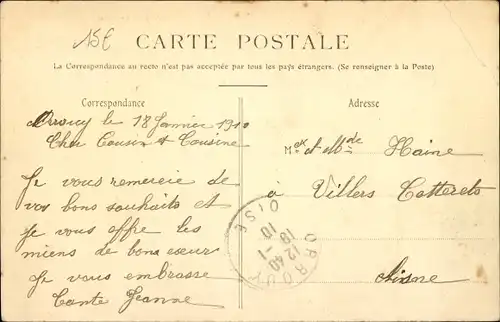 15€
CARTE POSTALE
La Correspondance au recto n'est pas acceptée par tous les pays étrangers. (Se renseigner à la Poste)
Correspondance
Orrouy le 18 Janvier 1910
Cher Cousin & Cousine
Je vous remercie de
vos bons souhaits et
je vous offre les
miens de bon cœur
Je vous embrasse
Tante Jeanne
Adresse
Haine
à Villers Cotterets
Aisne
ORROUY
12 40
18 -1
10
OISE